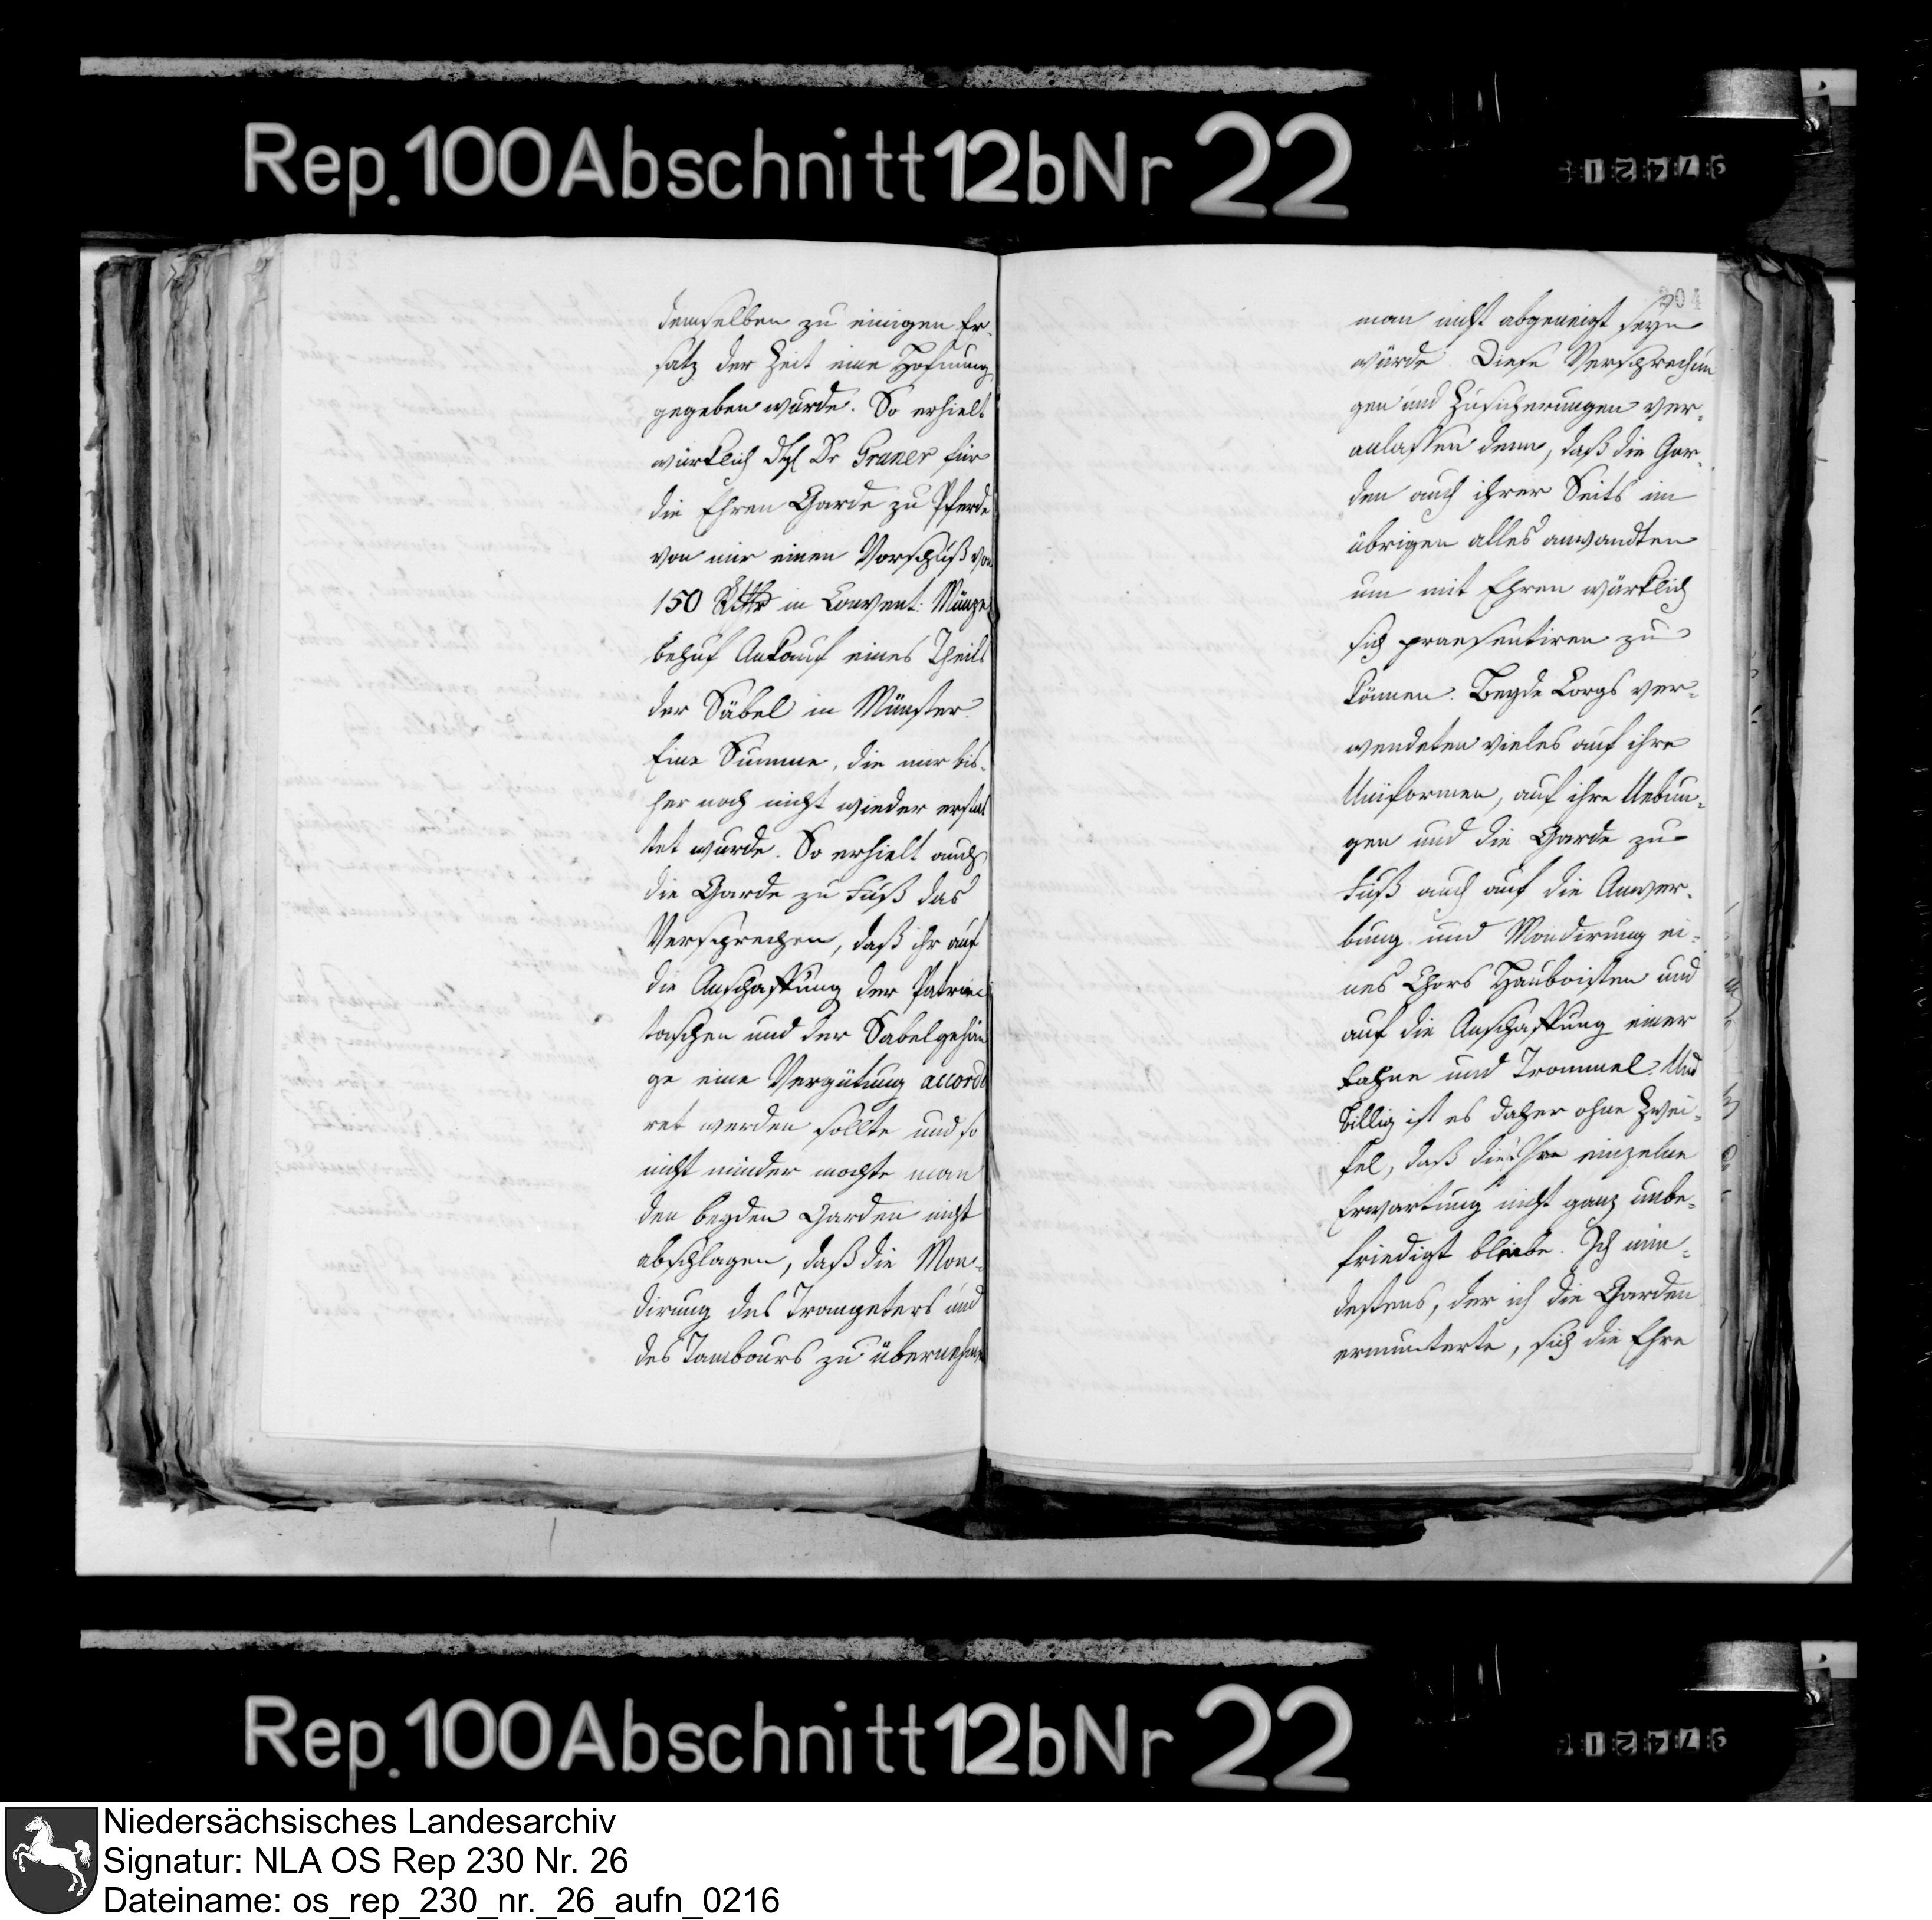 Rep. 100 Abschnitt 12b Nr 22
demselben zu einigen Er-
satz der Zeit eine Hofnung
gegeben wurde. So erhielt
würklich Dr Gruner für
die Ehren Garde zu Pferde
von mir einen Vorschuß von
150 Rthlr in Convent: Münze
behuf Ankauf eines Theils
der Säbel in Münster.
Eine Summe, die mir bis-
her noch nicht wieder erstat
tet wurde. So erhielt auch
die Garde zu Fuß das
Versprechen, daß ihr auf
die Anschaffung der Patron
taschen und der Säbelgehän
ge eine Vergütung accordi
ret werden sollte und so
nicht minder mochte man
den beyden Garden nicht
abschlagen, daß die Mon-
dirung des Trompeters und
des Tambours zu übernehmen
204
man nicht abgeneigt seyn
würde. Diese Versprechun
gen und Zusicherungen ver-
anlaßen denn, daß die Gar-
den auch ihrer Seits im
übrigen alles anwandten
um mit Ehren würklich
sich praesentiren zu
können. Beyde Corps ver-
wendeten vieles auf ihre
Uniformen, auf ihre Uebun-
gen und die Garde zu
Fuß auch auf die Anwer-
bung und Mondirung ei-
nes Chors Hauboisten und
auf die Anschaffung einer
Fahne und Trommel. Und
billig ist es daher ohne Zwei-
fel, daß die einzelne
Erwartung nicht ganz unbe-
friedigt bliebe. Ich min-
destens, der ich die Garden
ermunterte, sich die Ehre
Rep. 100 Abschnitt 12b Nr 22
Niedersächsisches Landesarchiv
Signatur: NLA OS Rep 230 Nr. 26
Dateiname: os_rep_230_nr._26_aufn_0216